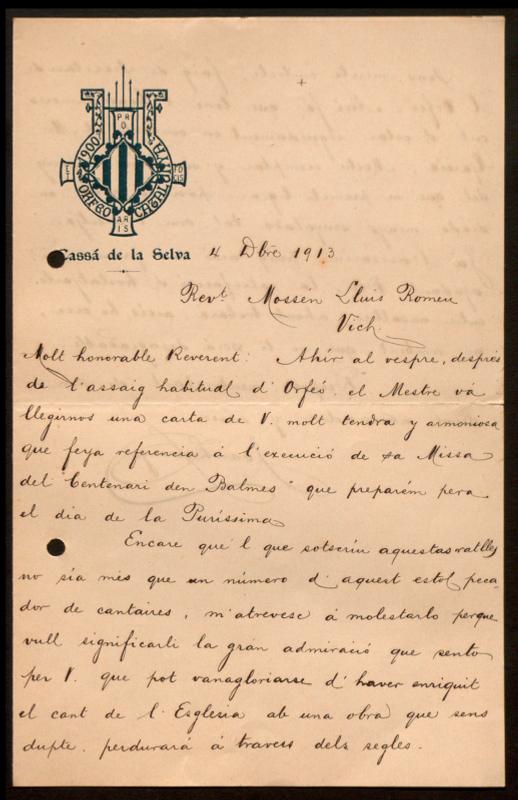 PRO
ET FOCIS
ARIS
ORFEO CATALUNYA
Cassá de la Selva 4 Dbre 1913
Revt. Mossén Lluis Romeu
Vich.
Molt honorable Reverent: Ahir al vespre, després
de l'assaig habitual d'Orfeó el Mestre vá
llegirnos una carta de V. molt tendra y armoniosa
que feya referencia á l'execució de sa Missa
del "Centenari den Balmes" que preparém pera
el dia de la Puríssima
Encare que'l que sotscriu aquestas ratlles
no sía més que un número d'aquest estol peca-
dor de cantaires, m'atrevesc á molestarlo perque
vull significarli la grán admiració que sento
per V. que pot vanagloriarse d'haver enriquit
el cant de l'Esglesia ab una obra que sens
dupte perdurará á travers dels segles.